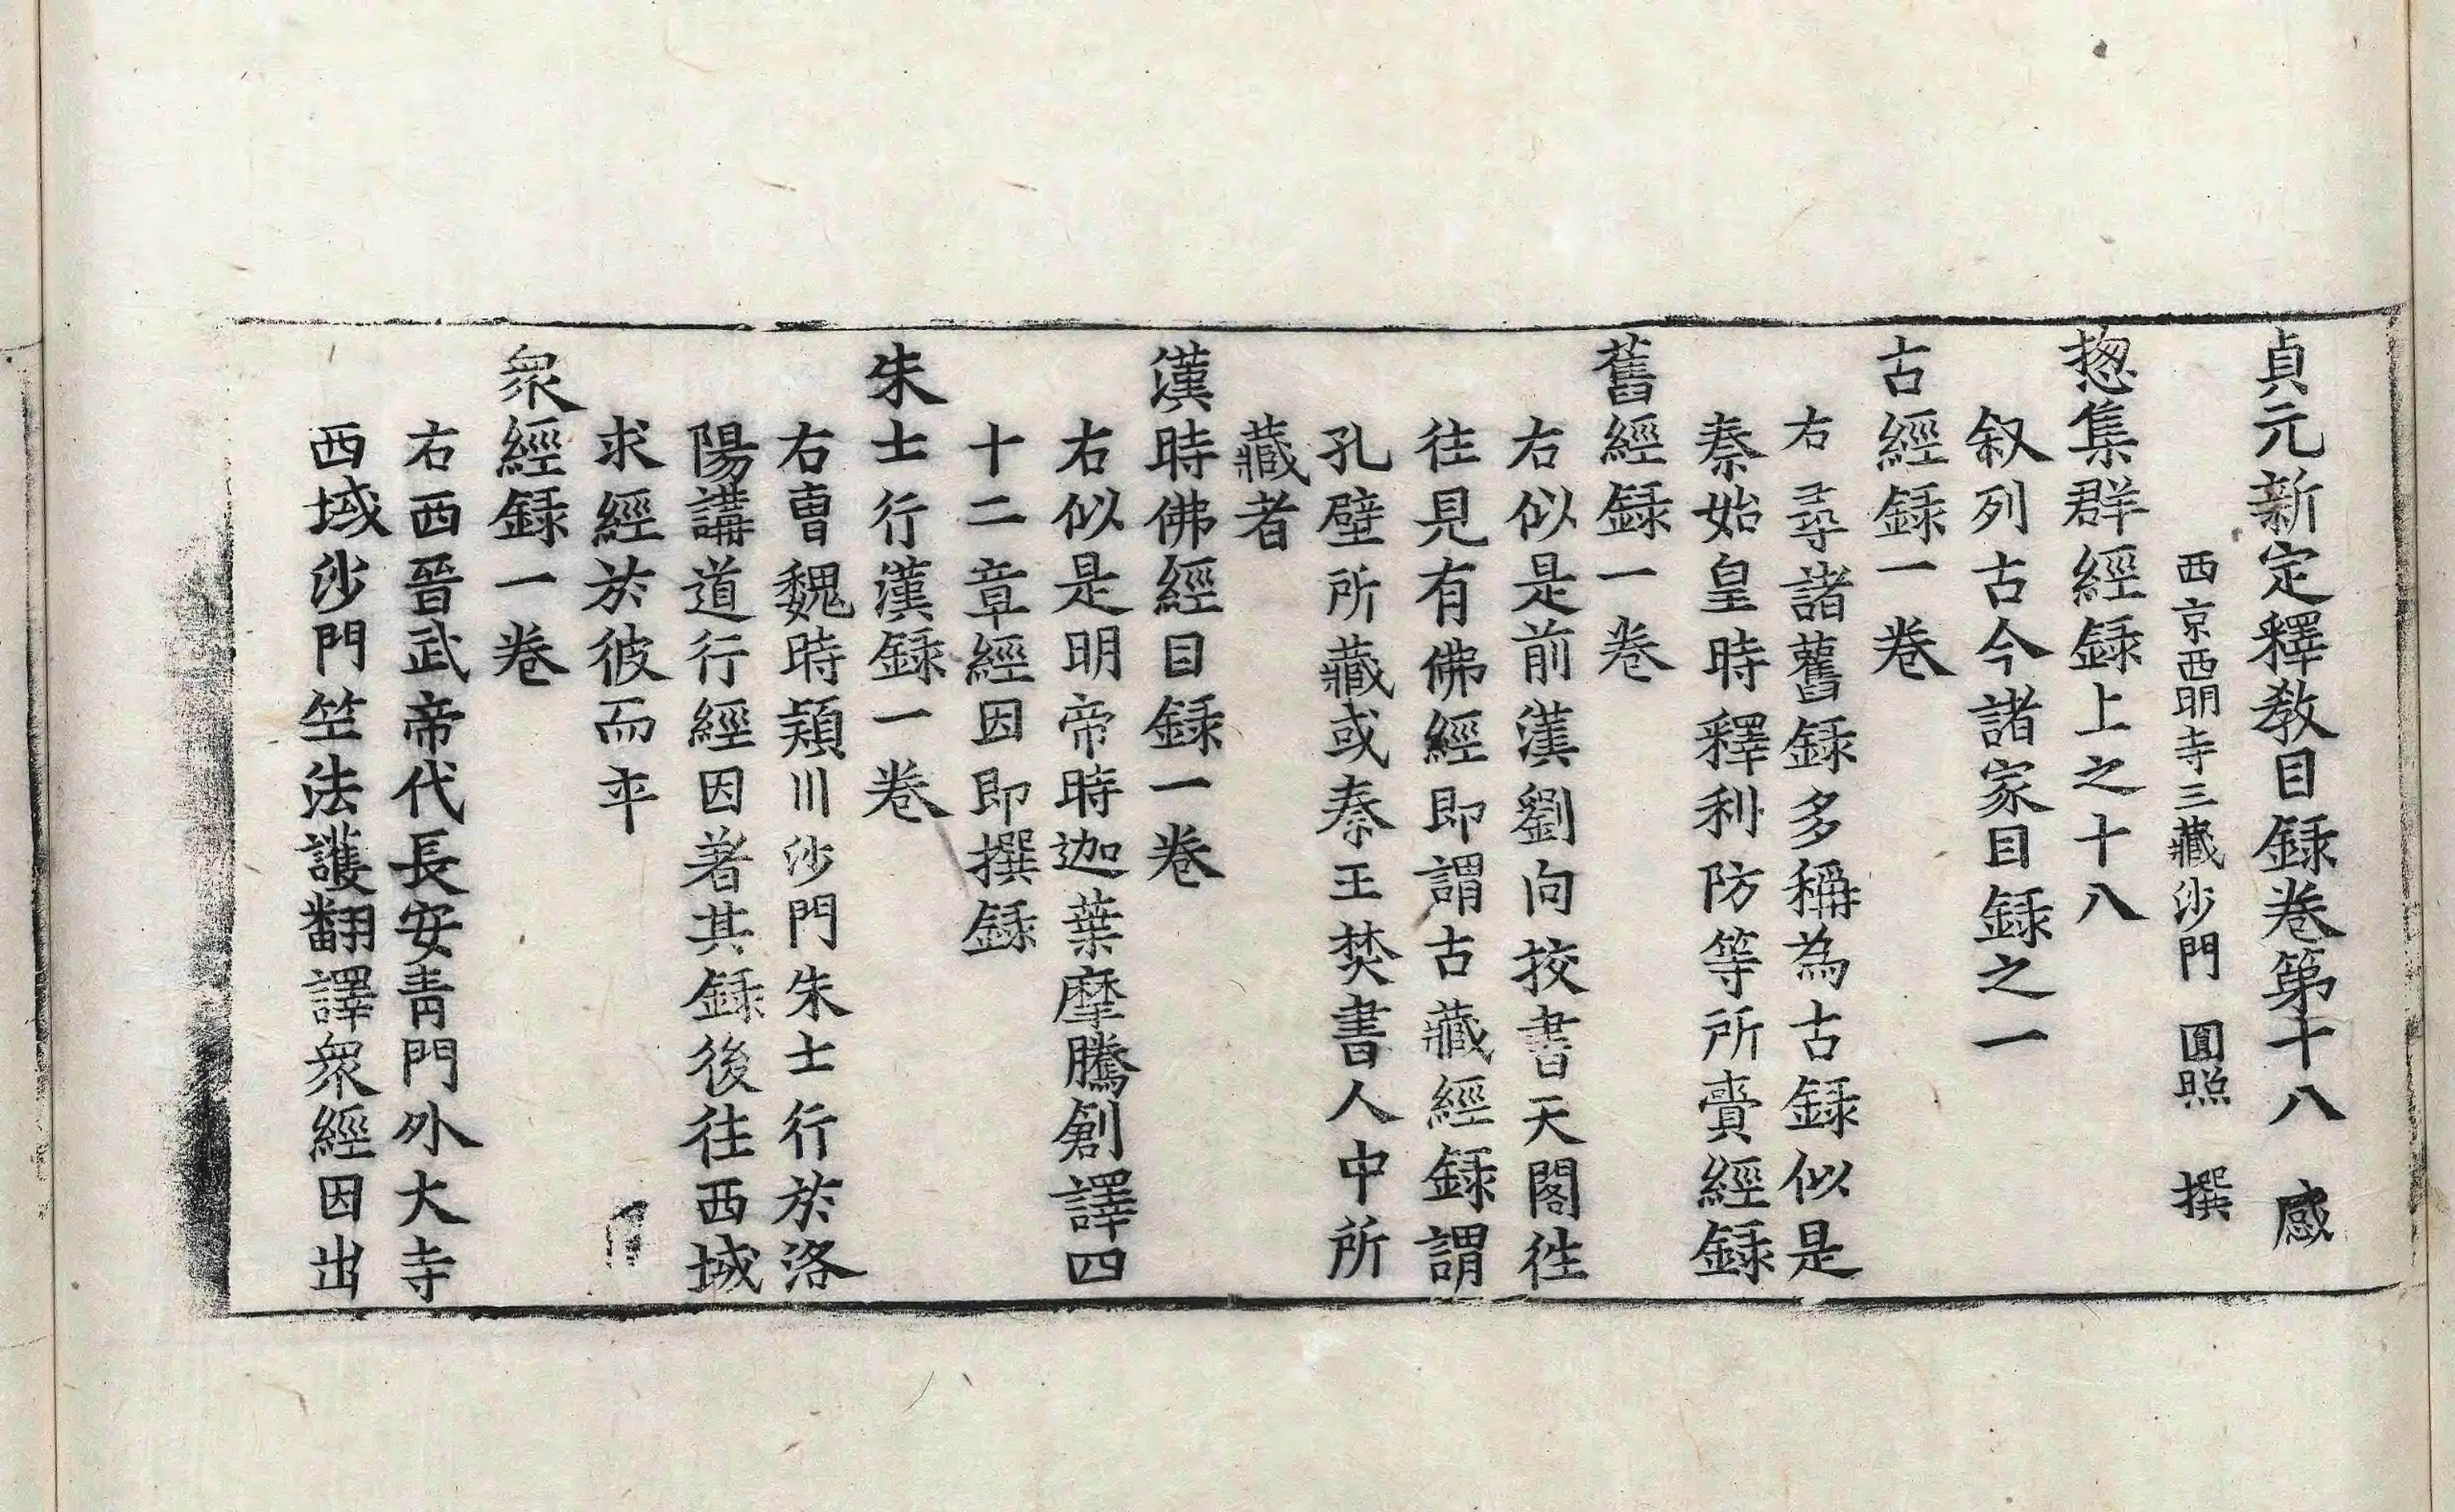 貞元新定釋教目録卷第十八　感
西京西明寺三藏沙門　圓照　撰
揔集群經録上之十八
叙列古今諸家目録之一
古經録一卷
右尋諸舊録多稱為古録似是
秦始皇時釋利防等所賷經録
舊經録一卷
右似是前漢劉向挍書天閣徃
往見有佛經即謂古藏經録謂
孔壁所藏或秦王焚書人中所
藏者
漢時佛經目録一卷
右似是明帝時迦葉摩騰創譯四
十二章經因即撰録
朱士行漢録一卷
右曹魏時潁川沙門朱士行於洛
陽講道行經因著其録後往西域
求經於彼而卒
衆經録一卷
右西晉武帝代長安青門外大寺
西域沙門竺法護翻譯衆經因出